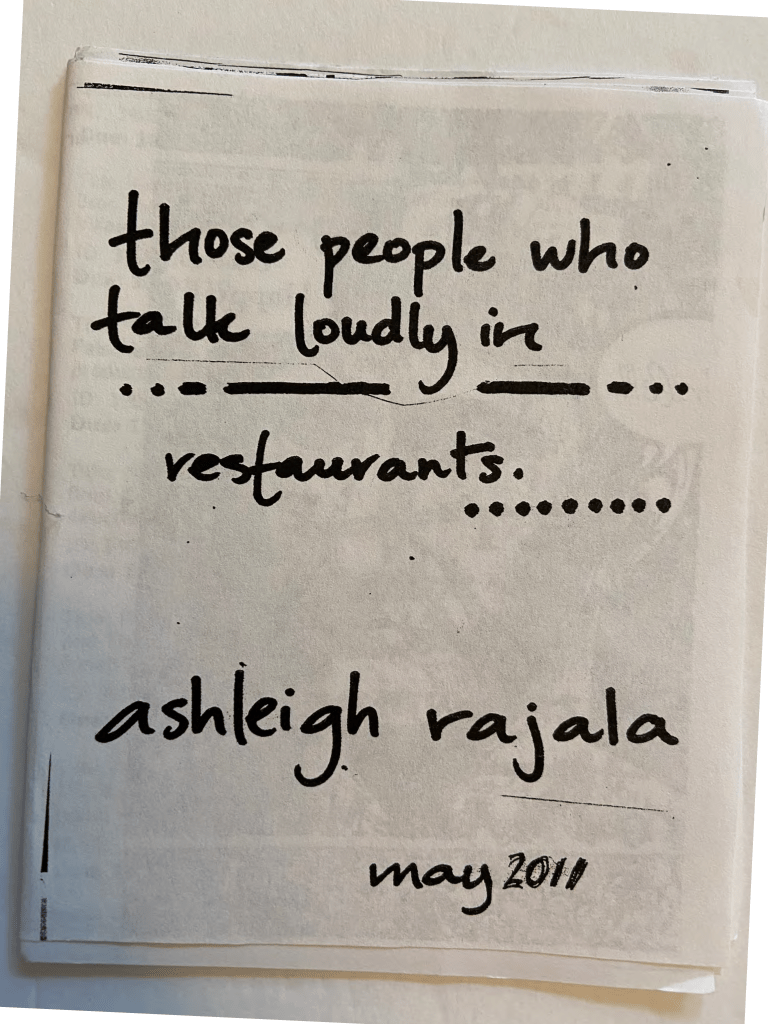 those people who
talk loudly in
restaurants.
ashleigh rajala
may 2011